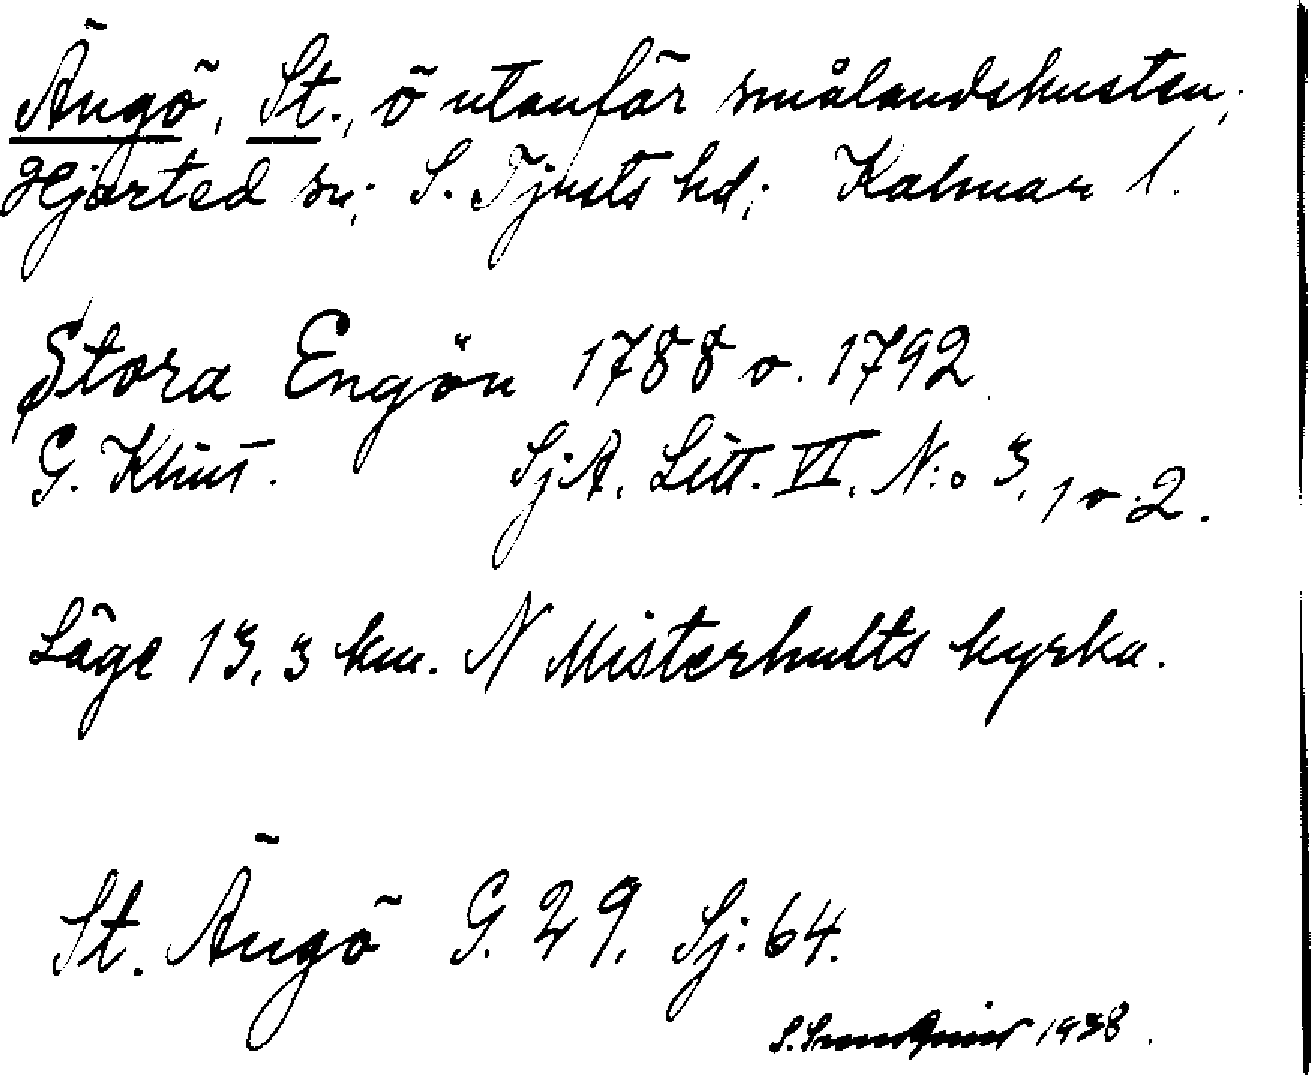 Ängö, St., ö utanför smålandskusten;
Hjorted sn; S. Tjusts hd; Kalmar l.
Stora Engön 1788 o. 1792.
G. Klint. Sj.A. Litt. VI. N:o 3, 1 o. 2.
Läge 13,3 km. N Misterhults kyrka.
St. Ängö G. 29. Sj: 64.
S. 1938.